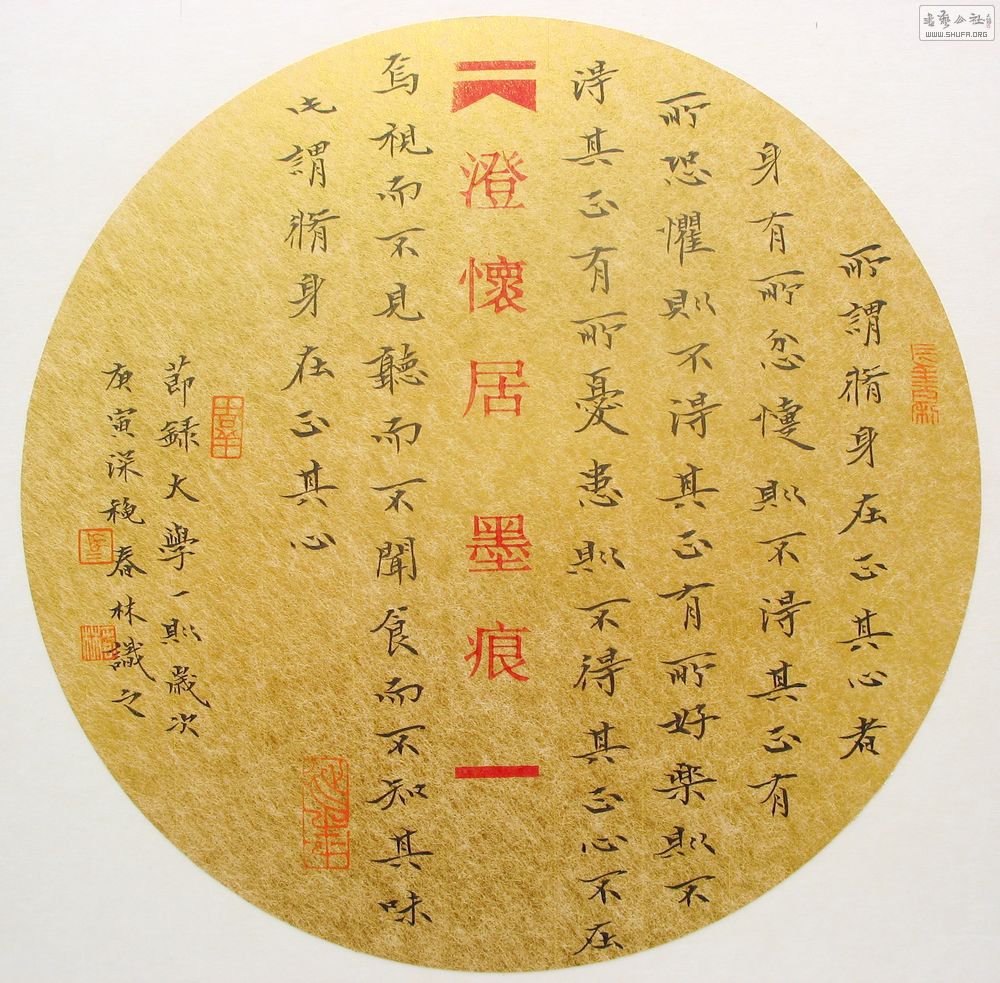 所謂脩身在正其心者
身有所忿懥則不得其正有
所恐懼則不得其正有所好樂則不
得其正有所憂患則不得其正心不在
澄懷居墨痕
焉視而不見聽而不聞食而不知其味
此謂脩身在正其心
節錄大學一則歲次
庚寅深秋春林識之
書藝公社
WWW.SHUFA.ORG